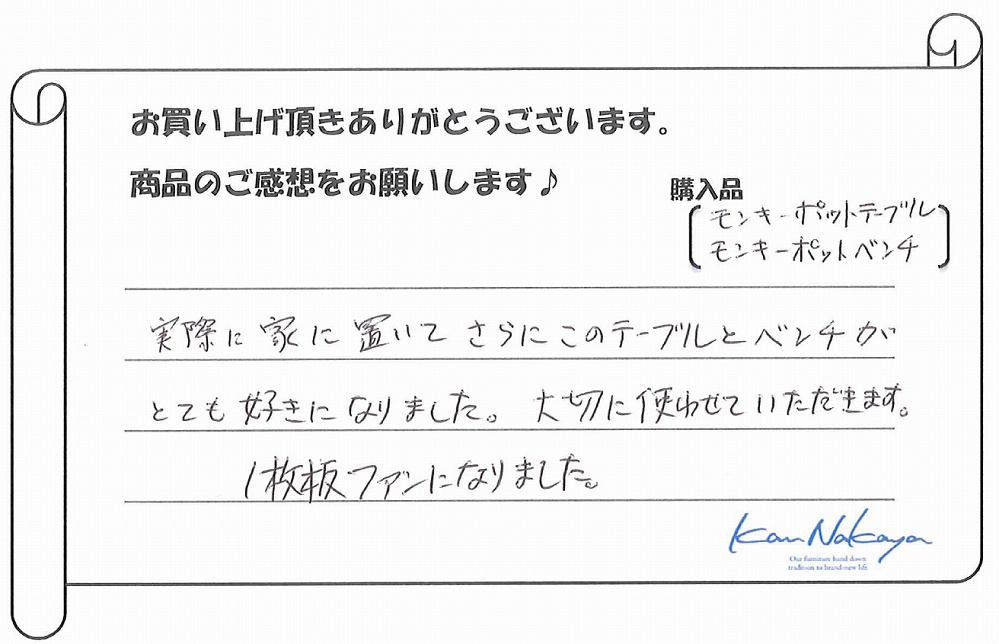 お買い上げ頂きありがとうございます。
商品のご感想をお願いします♪
購入品
モンキーポットテーブル
モンキーポットベンチ
実際に家に置いてさらにこのテーブルとベンチが
とても好きになりました。大切に使わせていただきます。
1枚板ファンになりました。
Kan Nakaya
Our furniture hand down
tradition to brand-new life